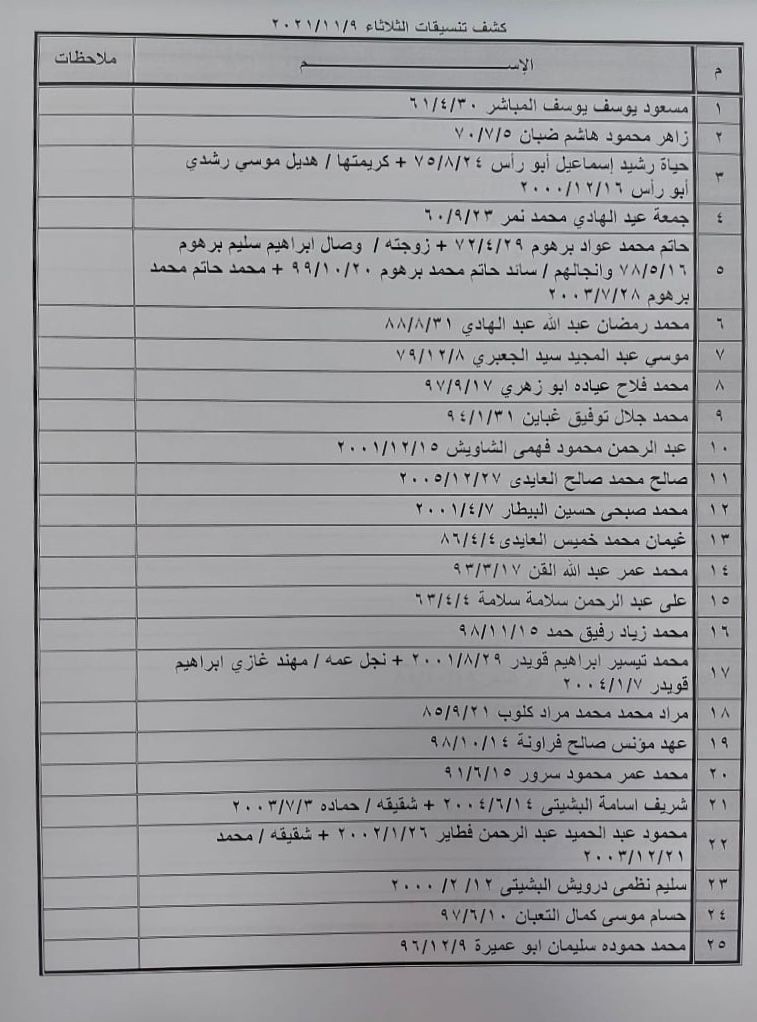 كشف تنسيقات الثلاثاء ٢٠٢١/١١/٩
م الإســـم ملاحظات
١ مسعود يوسف يوسف المباشر ٦١/٤/٣٠
٢ زاهر محمود هاشم ضبان ٧٠/٧/٥
٣ حياة رشيد إسماعيل أبو رأس ٧٥/٨/٢٤ + كريمتها / هديل موسي رشدي
أبو رأس ٢٠٠٠/١٢/١٦
٤ جمعة عيد الهادي محمد نمر ٦٠/٩/٢٣
٥ حاتم محمد عواد برهوم ٧٢/٤/٢٩ + زوجته / وصال ابراهيم سليم برهوم
٧٨/٥/١٦ وانجالهم / سائد حاتم محمد برهوم ٩٩/١٠/٢٠ + محمد حاتم محمد
برهوم ٢٠٠٣/٧/٢٨
٦ محمد رمضان عبد الله عبد الهادي ٨٨/٨/٣١
٧ موسي عبد المجيد سيد الجعبري ٧٩/١٢/٨
٨ محمد فلاح عياده ابو زهري ٩٧/٩/١٧
٩ محمد جلال توفيق غباين ٩٤/١/٣١
١٠ عبد الرحمن محمود فهمى الشاويش ٢٠٠١/١٢/١٥
١١ صالح محمد صالح العايدى ٢٠٠٥/١٢/٢٧
١٢ محمد صبحى حسين البيطار ٢٠٠١/٤/٧
١٣ غيمان محمد خميس العايدى ٨٦/٤/٤
١٤ محمد عمر عبد الله القن ٩٣/٣/١٧
١٥ على عبد الرحمن سلامة سلامة ٦٣/٤/٤
١٦ محمد زياد رفيق حمد ٩٨/١١/١٥
١٧ محمد تيسير ابراهيم قويدر ٢٠٠١/٨/٢٩ + نجل عمه / مهند غازي ابراهيم
قويدر ٢٠٠٤/١/٧
١٨ مراد محمد محمد مراد كلوب ٨٥/٩/٢١
١٩ عهد مؤنس صالح فراونة ٩٨/١٠/١٤
٢٠ محمد عمر محمود سرور ٩١/٦/١٥
٢١ شريف اسامة البشيتى ٢٠٠٤/٦/١٤ + شقيقه / حماده ٢٠٠٣/٧/٣
٢٢ محمود عبد الحميد عبد الرحمن فطاير ٢٠٠٢/١/٢٦ + شقيقه / محمد
٢٠٠٣/١٢/٢١
٢٣ سليم نظمى درويش البشيتى ١٢/ ٢/ ٢٠٠٠
٢٤ حسام موسى كمال التعبان ٩٧/٦/١٠
٢٥ محمد حموده سليمان ابو عميرة ٩٦/١٢/٩